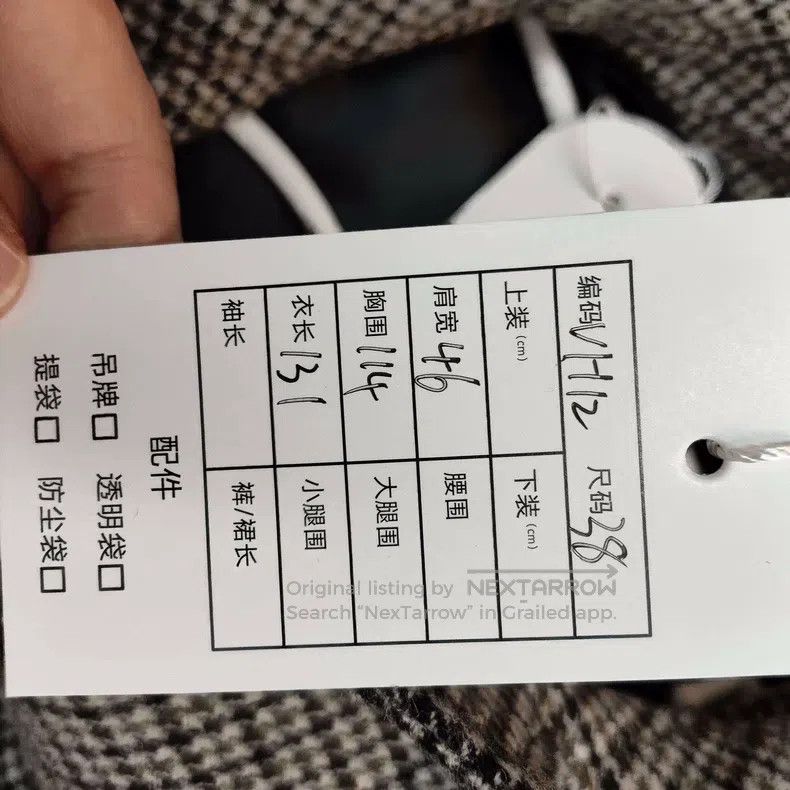 编码 VH12 尺码 38
上装(cm) 下装(cm)
肩宽 46 腰围
胸围 114 大腿围
衣长 131 小腿围
袖长 裤/裙长
配件
吊牌□ 透明袋□
提袋□ 防尘袋□
Original listing by NEXTARROW
Search "NexTarrow" in Grailed app.